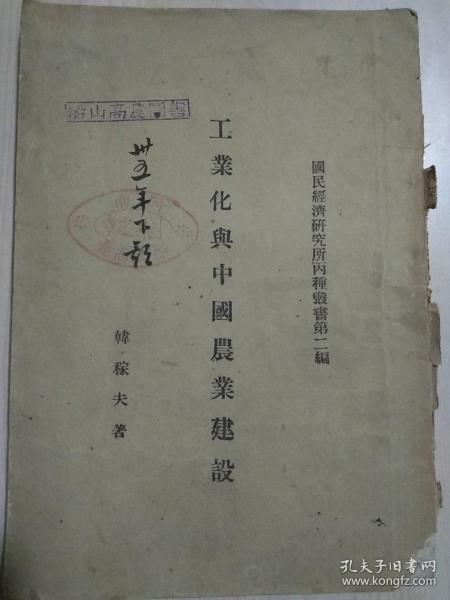 國民經濟硏究所丙種叢書第二編
工業化與中國農業建設
韓稼夫著
船山高農圖書
卅五年下
孔夫子旧书网
www.kongfz.com